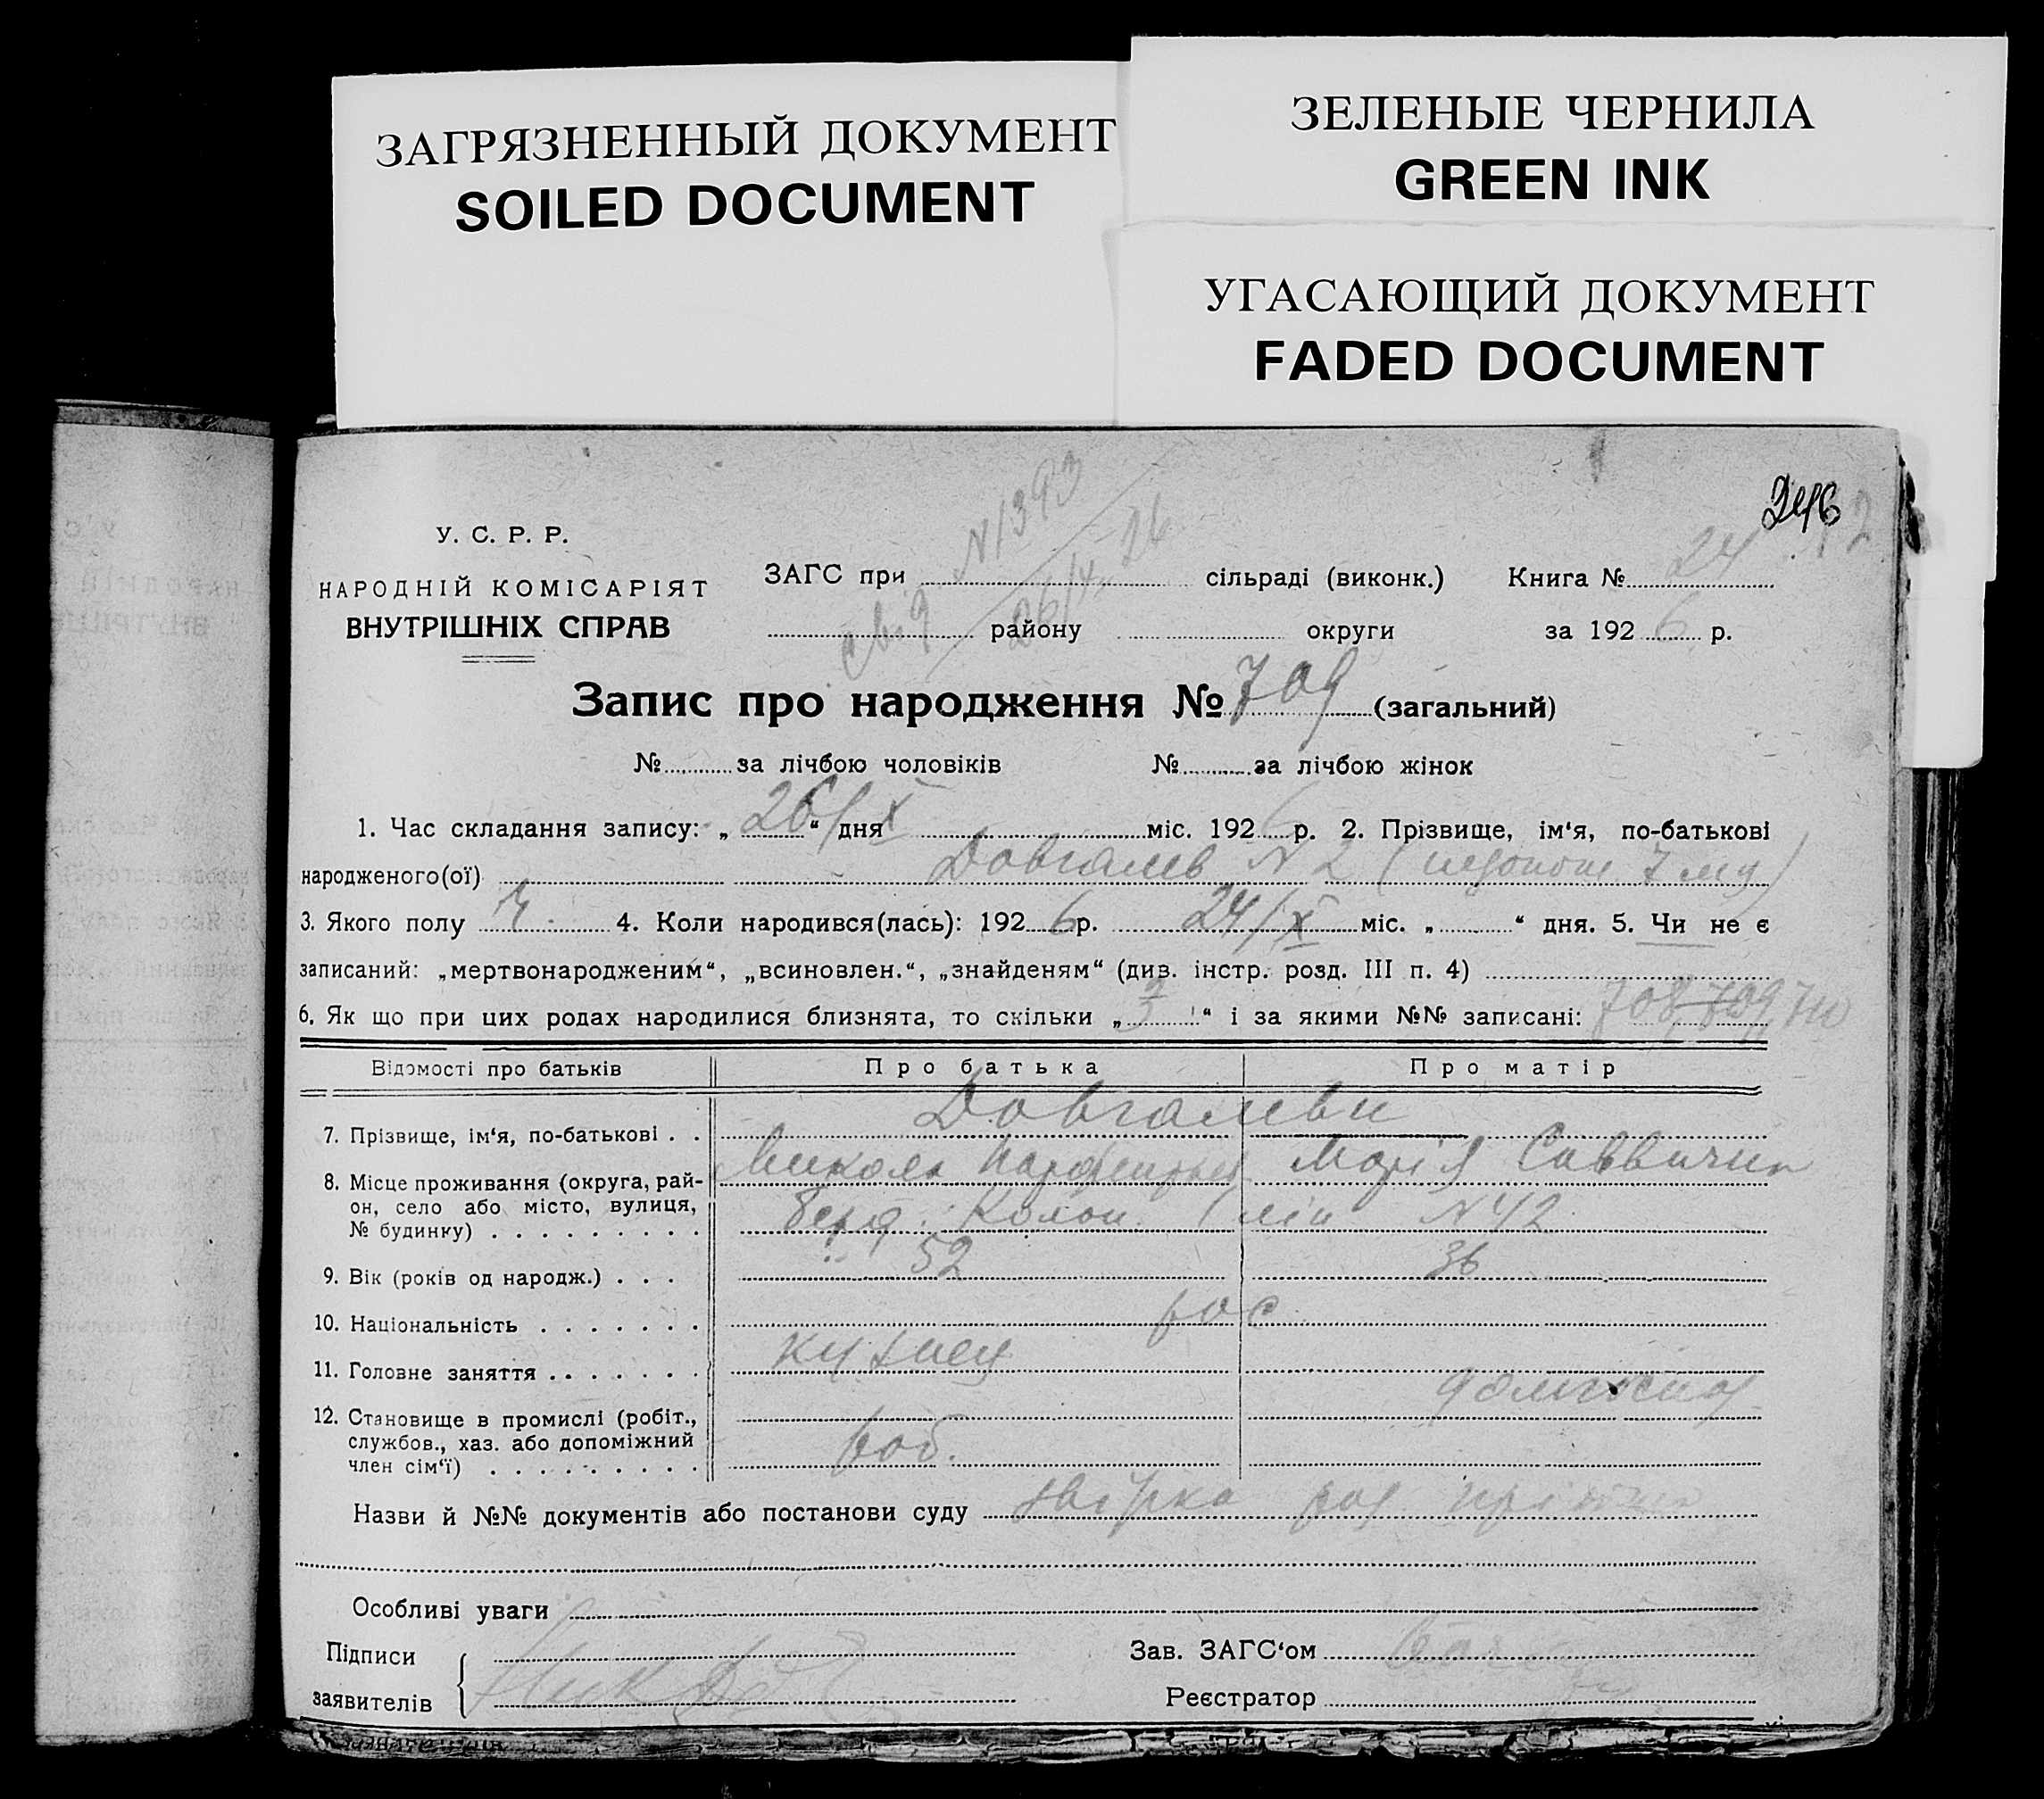 ЗАГРЯЗНЕННЫЙ ДОКУМЕНТ
SOILED DOCUMENT
ЗЕЛЕНЫЕ ЧЕРНИЛА
GREEN INK
УГАСАЮЩИЙ ДОКУМЕНТ
FADED DOCUMENT
N 1393
26
У. С. Р. Р.
НАРОДНІЙ КОМІСАРІЯТ
ВНУТРІШНІХ СПРАВ
ЗАГС при сільраді (виконк.) Книга № 24
району округи за 192 6 р.
Запис про народження № 709 (загальний)
№ за лічбою чоловіків № за лічбою жінок
1. Час складання запису: „ 26/X “ дня міс. 192 6 р. 2. Прізвище, ім‘я, по-батькові
народженого(ої) Довгалев N 2 ( 7 )
3. Якого полу ч. 4. Коли народився(лась): 192 6 р. 24/X міс. „ “ дня. 5. Чи не є
записаний: „мертвонародженим“, „всиновлен.“, „знайденям“ (див. інстр. розд. III п. 4)
6. Як що при цих родах народилися близнята, то скільки „ 3 “ і за якими №№ записані: 708, 709, 710
Відомості про батьків Про батька Про матір
7. Прізвище, ім‘я, по-батькові . . Довгалеви
Микола Марія Саввична
8. Місце проживання (округа, рай-
он, село або місто, вулиця,
№ будинку) . . . . . . . . . Колон. 1 лін N 42
9. Вік (років од народж.) . . . 52 36
10. Національність . . . . . . . рос.
11. Головне заняття . . . . . . .
12. Становище в промислі (робіт.,
службов., хаз. або допоміжний
член сім‘ї) . . . . . . . . . роб.
Назви й №№ документів або постанови суду
Особливі уваги
Підписи
заявителів
Зав. ЗАГС‘ом
Реєстратор